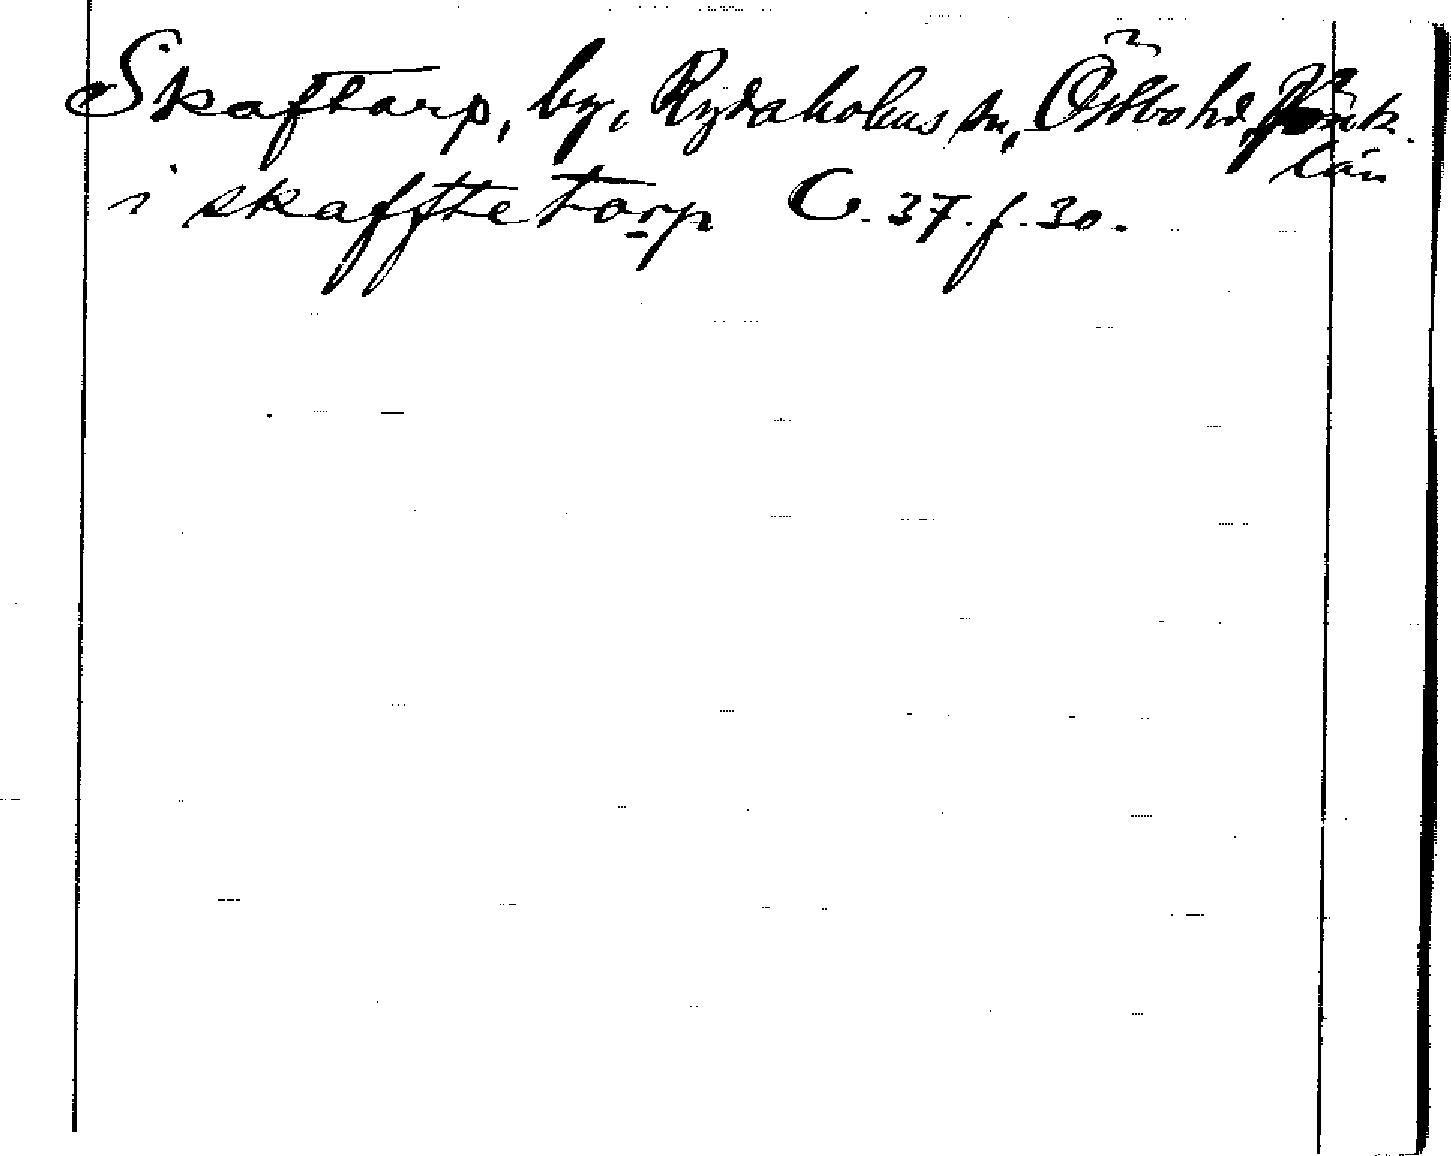 Skaftarp, by, Rydaholms sn, Östbo hd, Jönk.
län
i skafftetorp C. 37. f. 30.